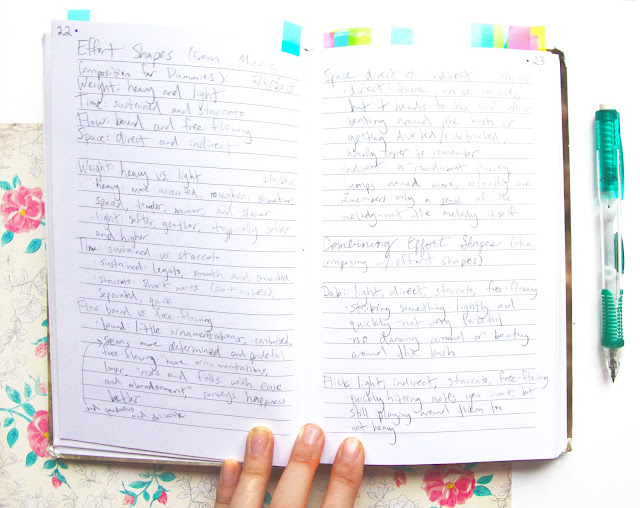 22
Effort Shapes (from Music
Composition for Dummies):
2/2/2015
Weight: heavy and light
Time: sustained and staccato
Flow: bound and free-flowing
Space: direct and indirect
Weight: heavy vs. light
heavy: more accented, rougher, sometimes
spaced, louder, minor, and slower
light: softer, gentler, typically
and higher
Time: sustained vs. staccato
sustained: legato, smooth and connected
staccato: short notes (short notes),
separated, quick
Flow: bound vs. free-flowing
bound: little ornamentations, controlled,
seems more determined and prideful
free-flowing: more ornamentations,
"rises and falls with ease
and abandonment", conveys happiness
better
and
23
Space: direct vs indirect
direct: there can be
but it heads to the end w/out
beating around the bush or
getting diverted/sidetracked,
usually easier to remember
indirect: a roundabout journey,
jumps around more, usually one
remembers only a sense of the
melody-not the melody itself
Combining Effort Shapes (aka
composing w/ effort shapes)
Dab: light, direct, staccato, free-flowing
striking something lightly and
quickly-not very forceful
no dancing around or beating
around the bush
Flick: light, indirect, staccato, free-flowing
quickly hitting notes you want but
still playing around them
not heavy